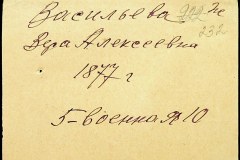 Васильева
232
Вера Алексеевна
1877 г
5-военная 10